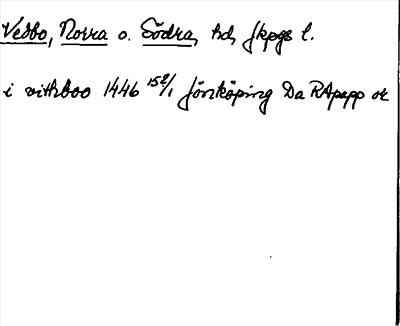 Vedbo, Norra o. Södra, hd, Jkpgs l.
i vithboo 1446 15/1 Jönköping Da RApapp or